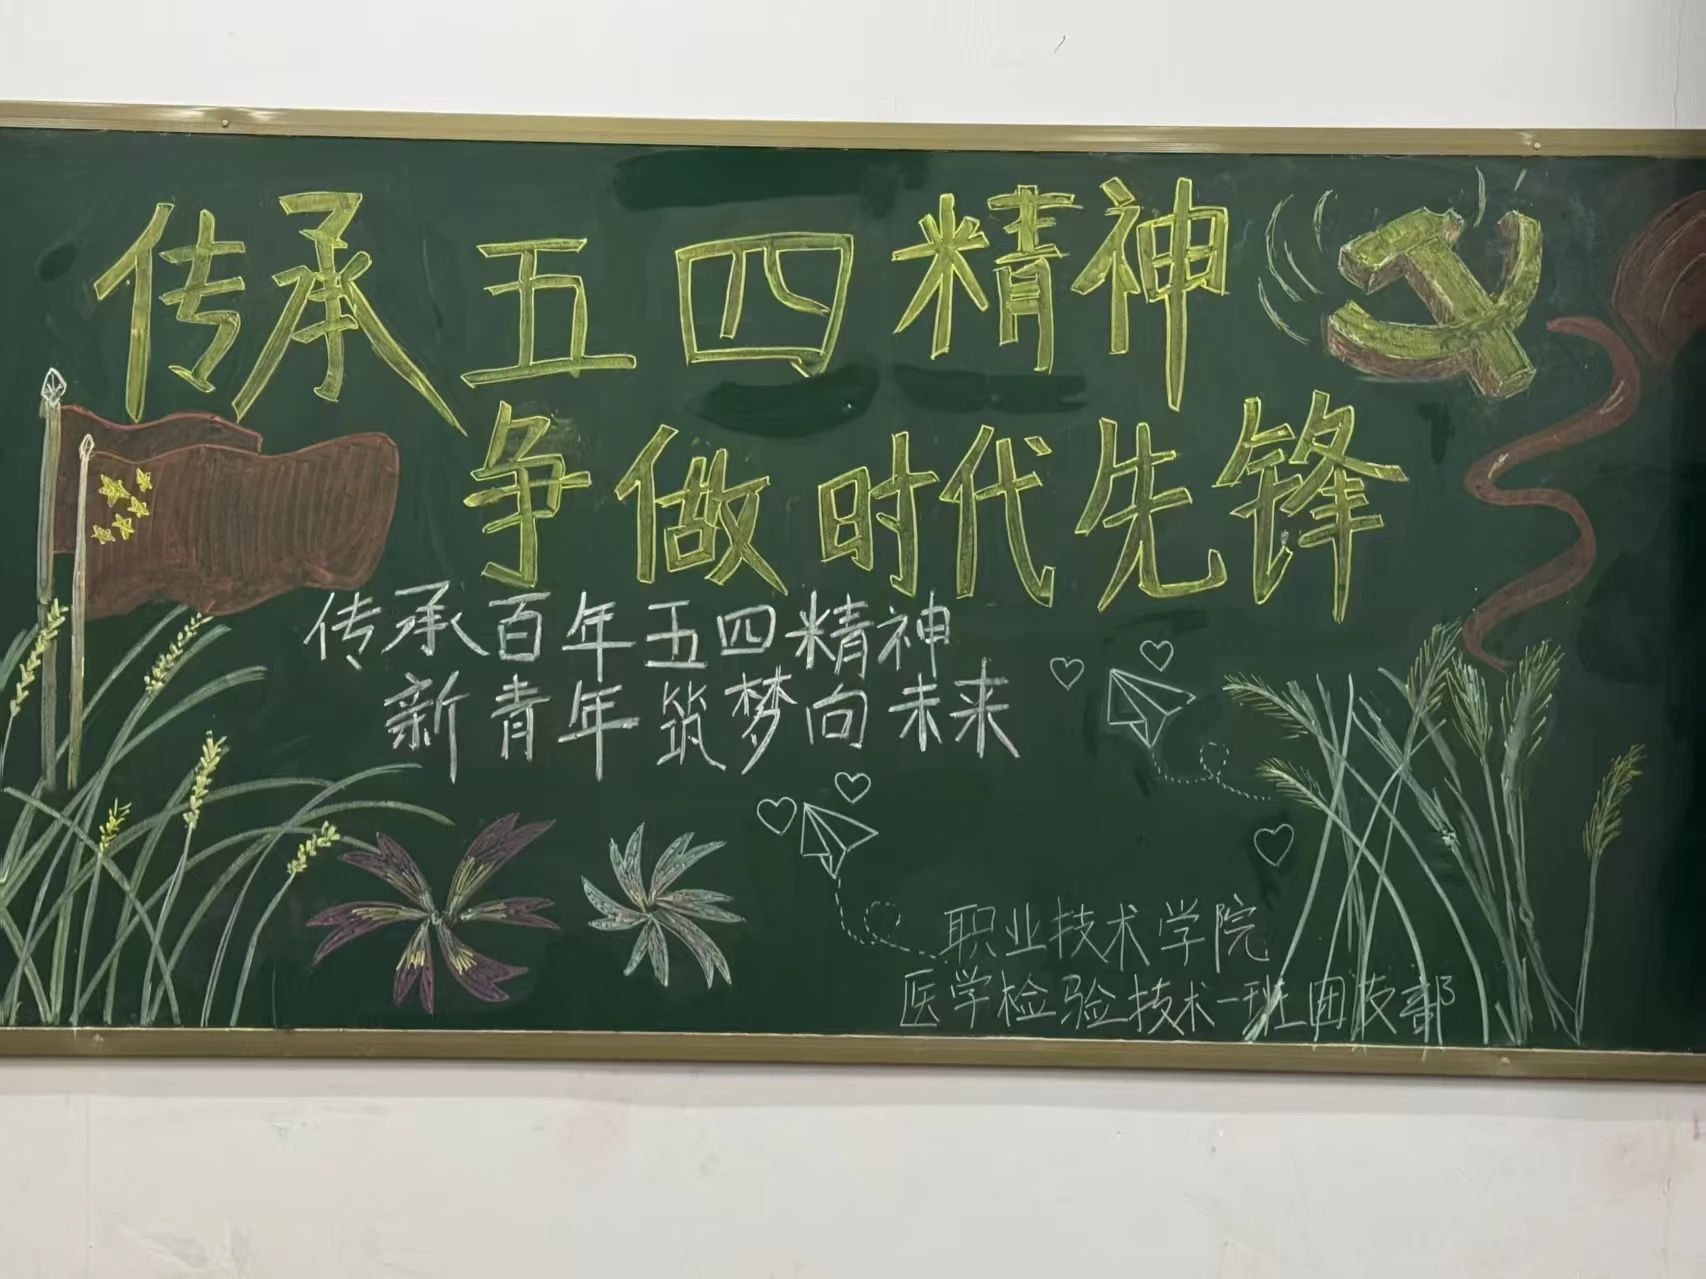 传承五四精神
争做时代先锋
传承百年五四精神
新青年筑梦向未来
职业技术学院
医学检验技术一班团支部